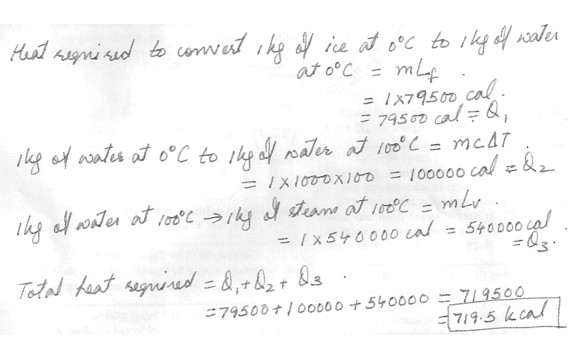 Heat required to convert 1kg of ice at 0°C to 1kg of water
at 0°C = mLf.
= 1x79500 cal.
= 79500 cal = Q1
1kg of water at 0°C to 1kg of water at 100°C = mcΔT.
= 1x1000x100 = 100000 cal = Q2
1kg of water at 100°C → 1kg of steam at 100°C = mLv.
= 1x540000 cal = 540000 cal
= Q3.
Total heat required = Q1+Q2+Q3.
= 79500+100000+540000 = 719500
= 719.5 kcal